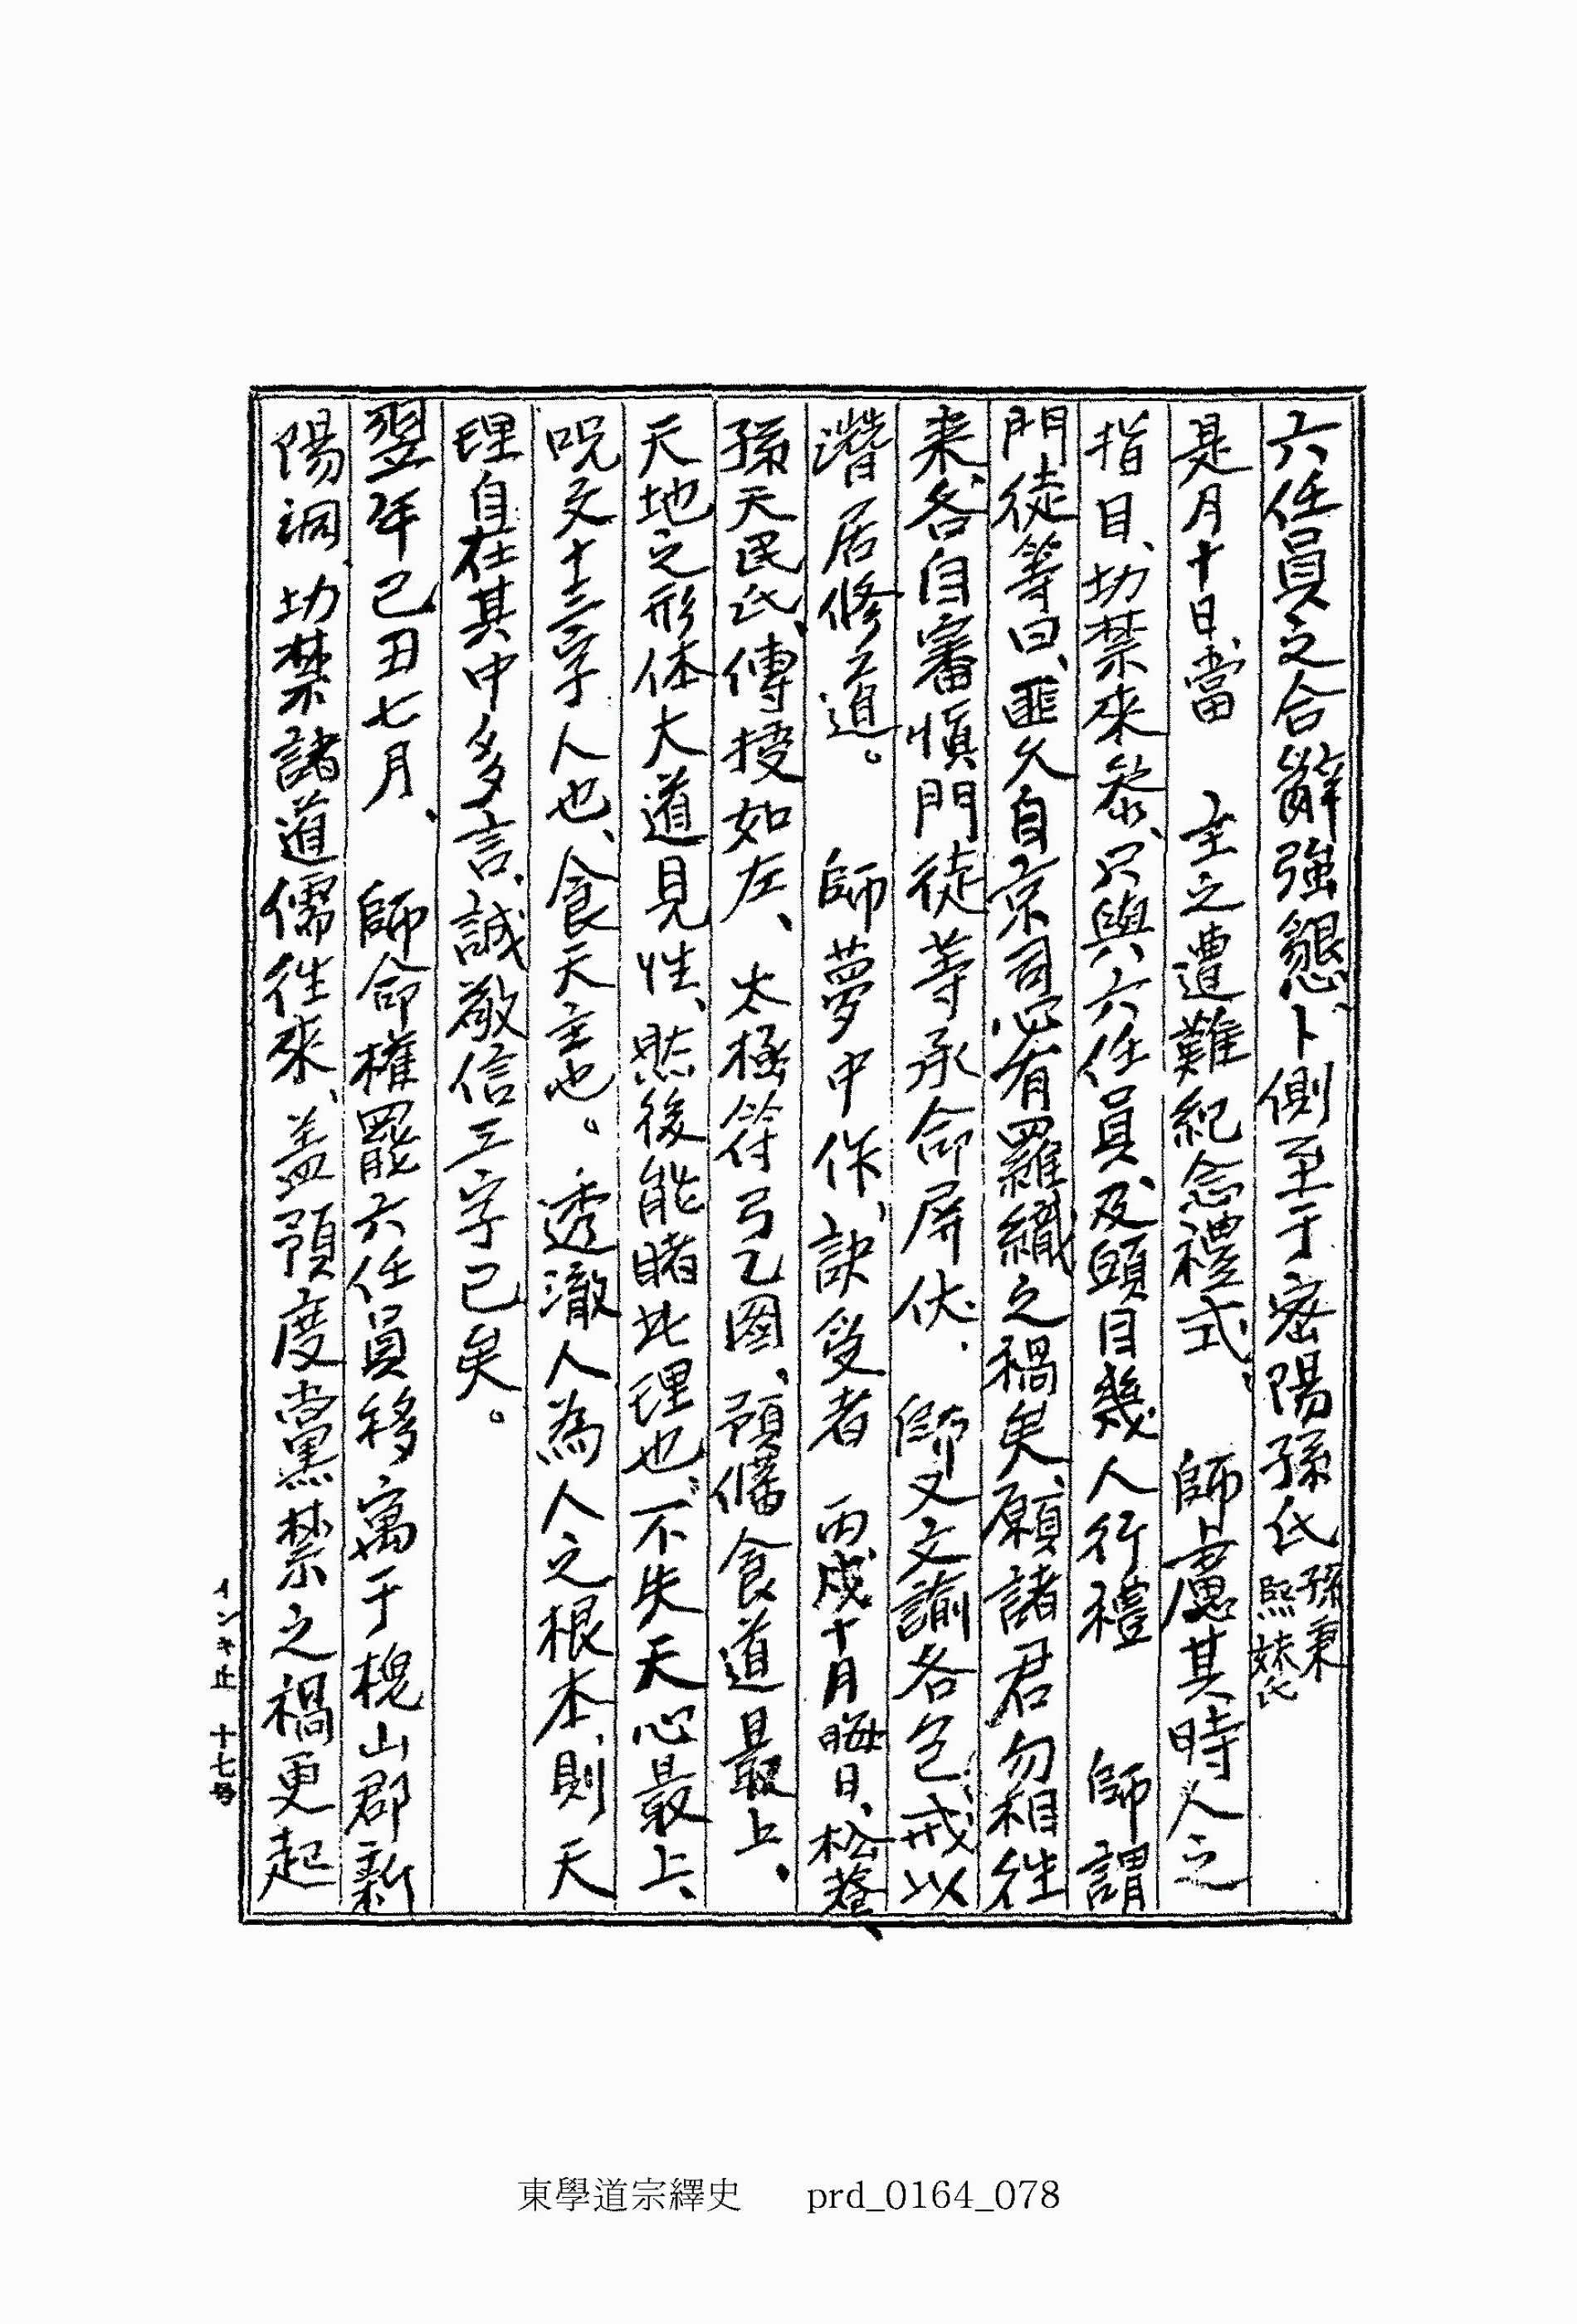 六任員之合辭強懇、卜側至于密陽孫氏孫秉熙妹氏
是月十日、當 主之遭難紀念禮式、 師慮其時人之
指目、切禁來參、只與六任員及頭目幾人行禮 師謂
門徒等曰、匪久自京司必有羅織之禍矣、願諸君勿相往
来、各自審愼門徒等承命屏伏、 師又文諭各包、戒以
潛居修道。 師夢中作、訣受者 丙戌十月晦日、松菴、
孫天民氏、傳授如左、 太極符弓乙圖、預備食道最上、
天地之形体大道見性、然後能睹此理也、不失天心最上、
呪文十三字人也、食天主也。透澈人為人之根本、則天
理自在其中多言、誠敬信三字已矣。
翌年己丑七月、 師命權罷六任員移寓于槐山郡新
陽洞、切禁諸道儒往來、盖預度黨禁之禍更起
インキ止 十七号
東學道宗繹史 prd_0164_078